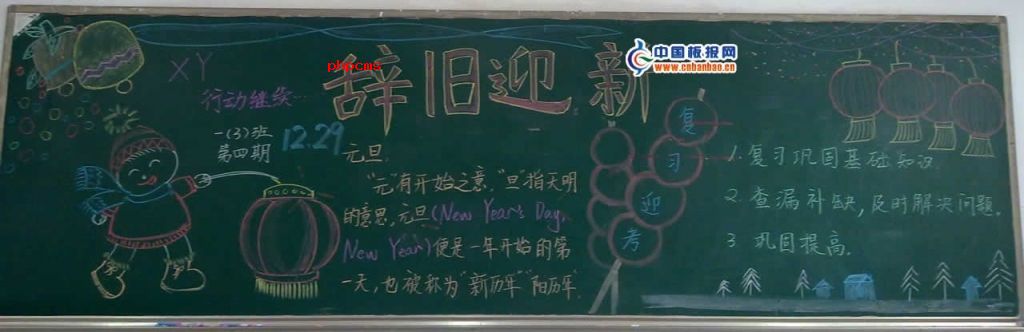 辞旧迎新
phpcms
中国板报网
www.cnbanbao.cn
XY
行动继续…
一(3)班
第四期
12.29
元旦.
"元"有开始之意,"旦"指天明
的意思.元旦(New Year's Day,
New Year)便是一年开始的第
一天,也被称为"新历年""阳历年".
复
习
迎
考
1.复习巩固基础知识.
2.查漏补缺,及时解决问题.
3.巩固提高.